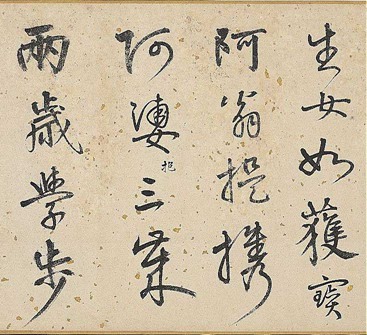 生女如獲寶
阿翁提携
阿婆抱三
兩歲學步